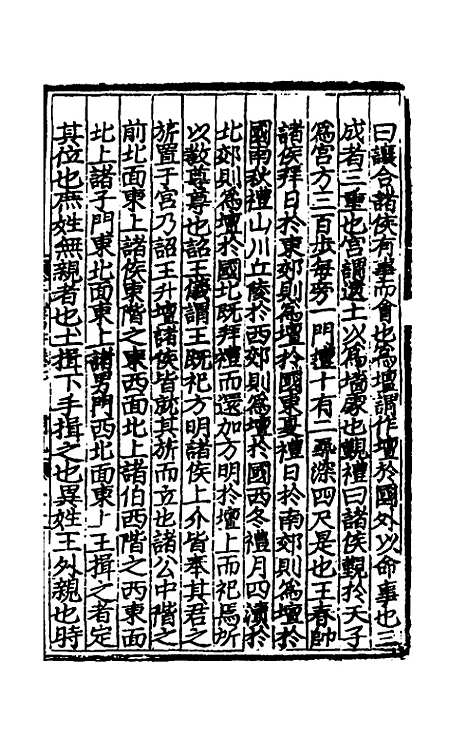 曰讓合諸侯有事而會也為壇謂作壇於國外以命事也三
成者三重也宮謂壝土以為墻處也覲禮曰諸侯覲於天子
為宮方三百步每旁一門壇十有二尋深四尺是也王春帥
諸侯拜日於東郊則為壇於國東夏禮日於南郊則為壇於
國南秋禮山川丘陵於西郊則為壇於國西冬禮月四瀆於
北郊則為壇於國北既拜禮而還加方明於壇上而祀焉所
以教尊尊也詔王儀謂王既祀方明諸侯上介皆奉其君之
旂置于宮乃詔王升壇諸侯皆就其旂而立也諸公中階之
前北面東上諸侯東階之東西面北上諸伯西階之西東面
北上諸子門東北面東上諸男門西北面東上王揖之者定
其位也庶姓無親者也土揖下手揖之也異姓王外親也時